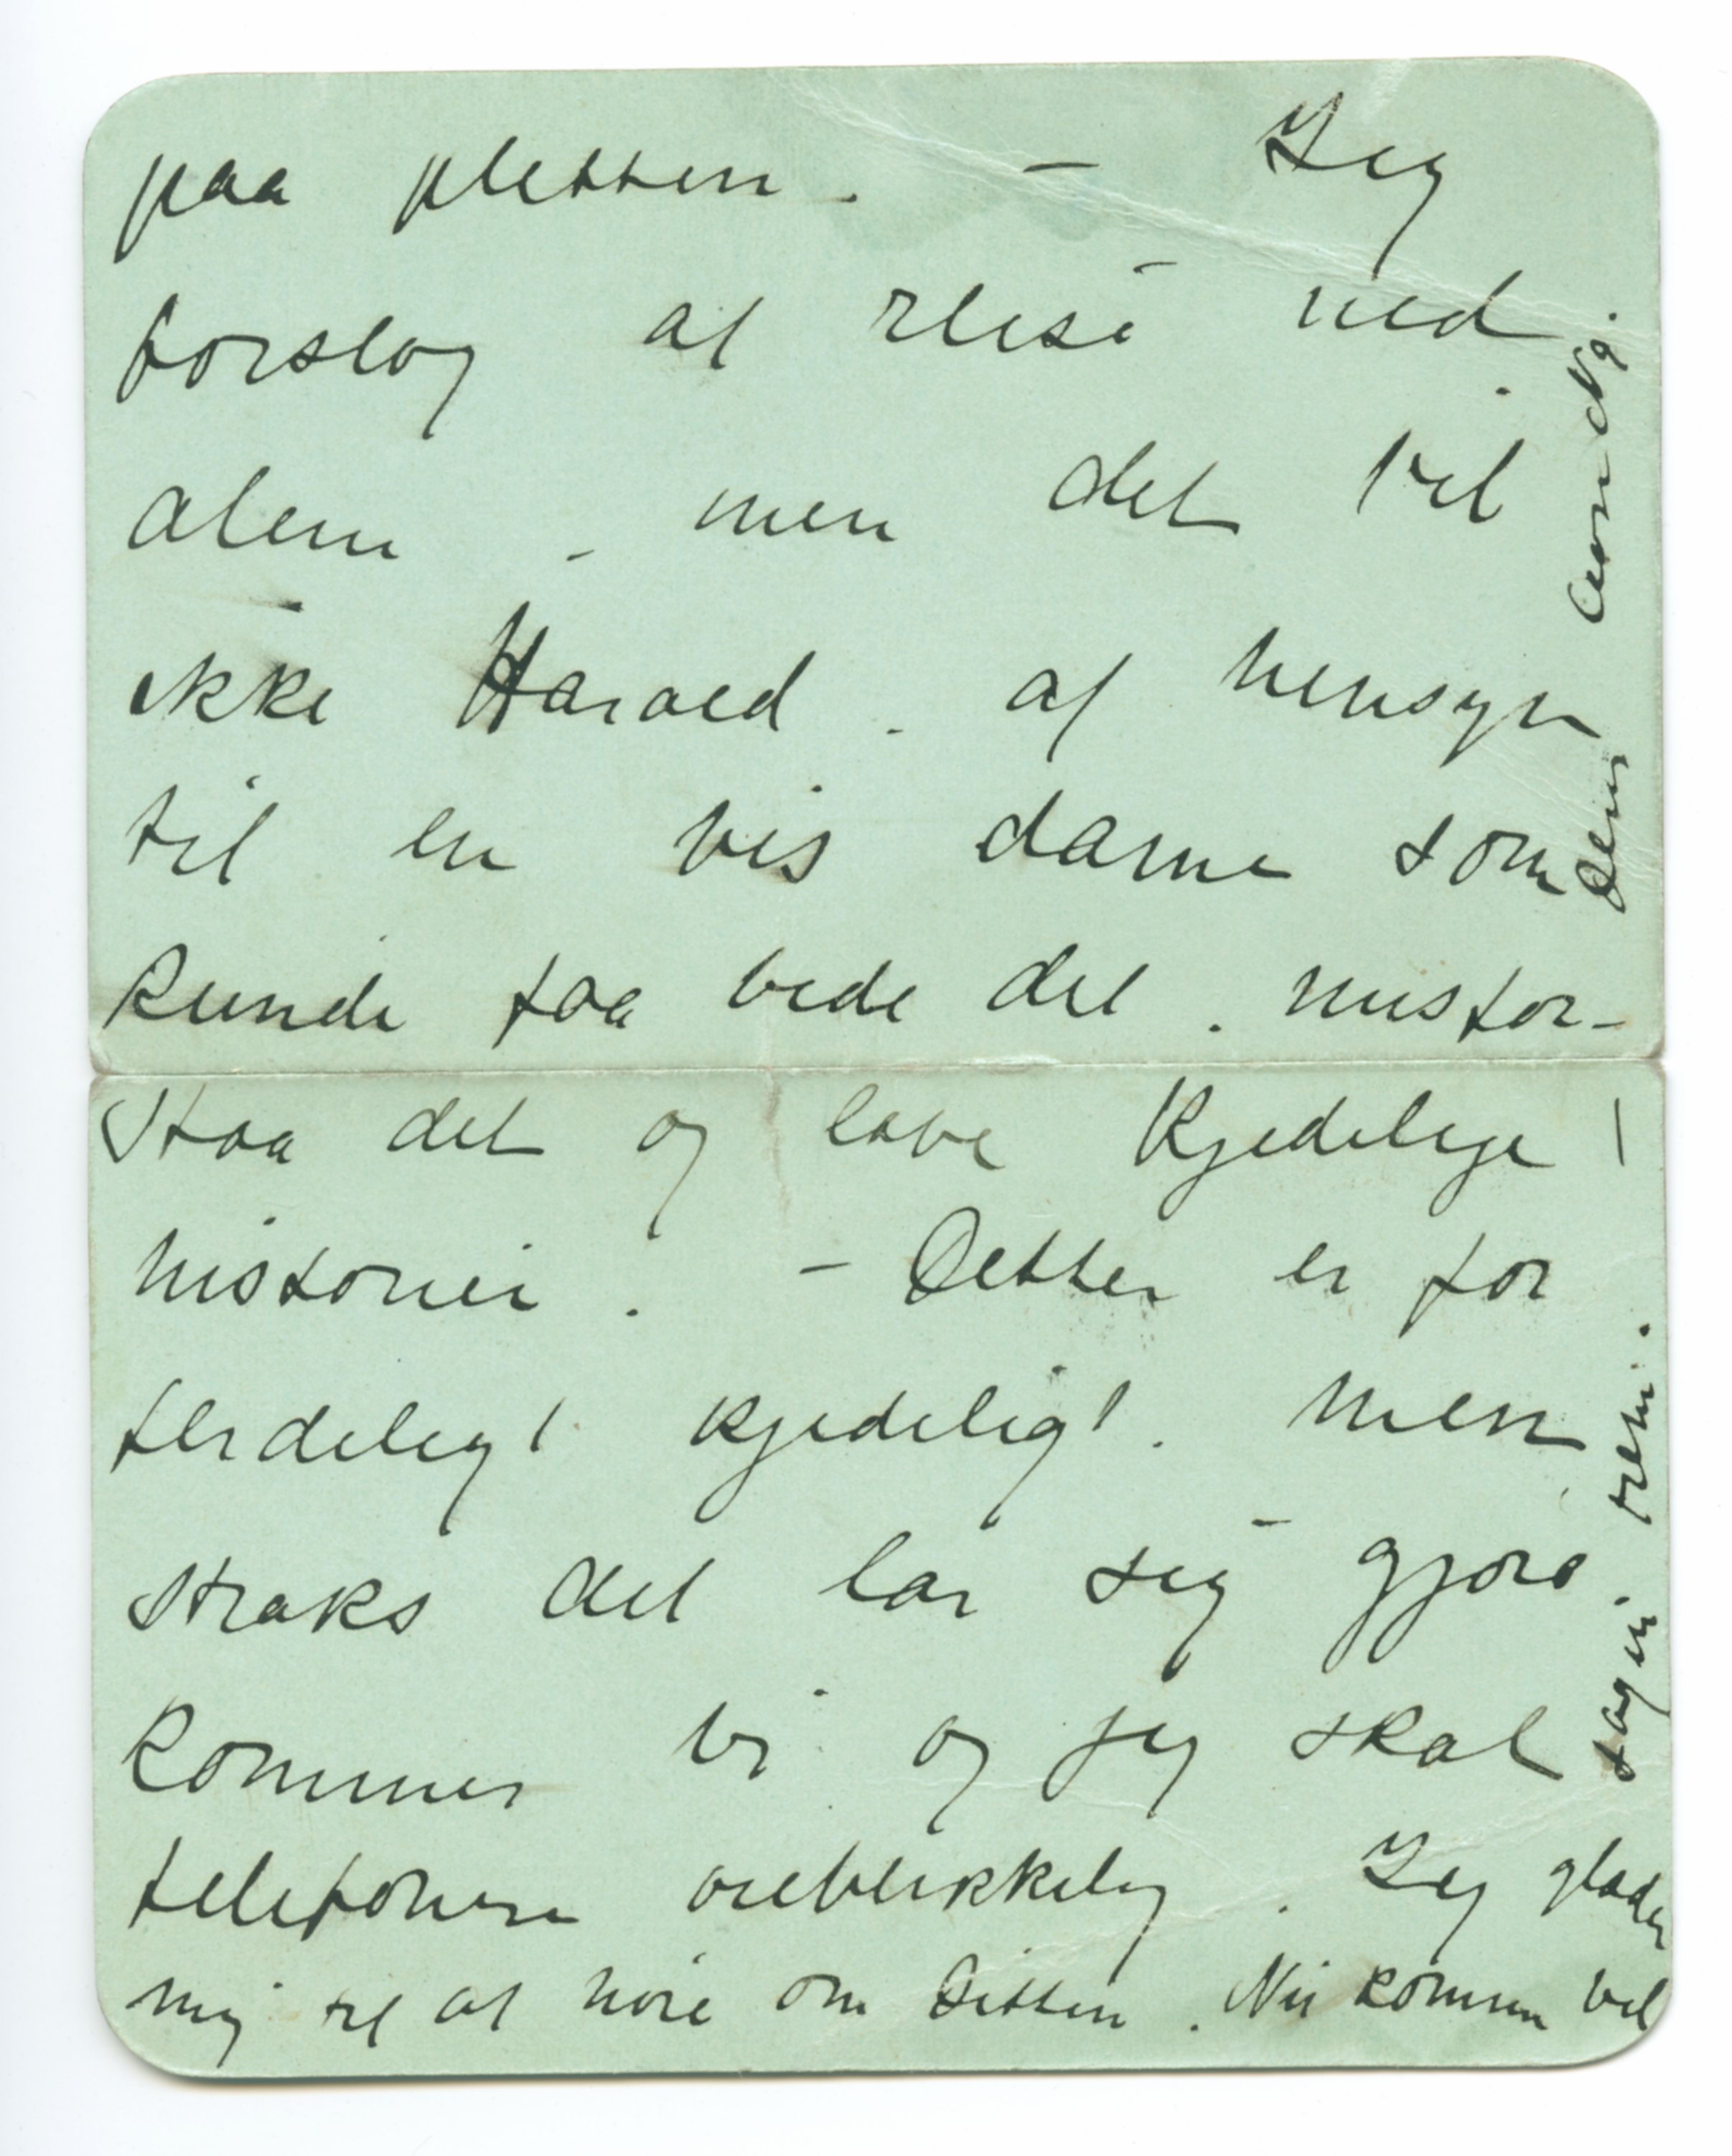 paa pletten. — Jeg
forslog at reise ned.
alene - men det vil
ikke Harald. af hensyn
til en vis dame som
kunde faa vide det. misfor-
staa det og lave kjedelige
historier. — Dette er for
ferdeligt kjedeligt. Men
straks det lar sig gjøre
kommer vi og jeg skal
telefonere øieblikkelig. Jeg glæder
mig til at høre om Sitten. Nu kommer vel
sagen rem.
Deres